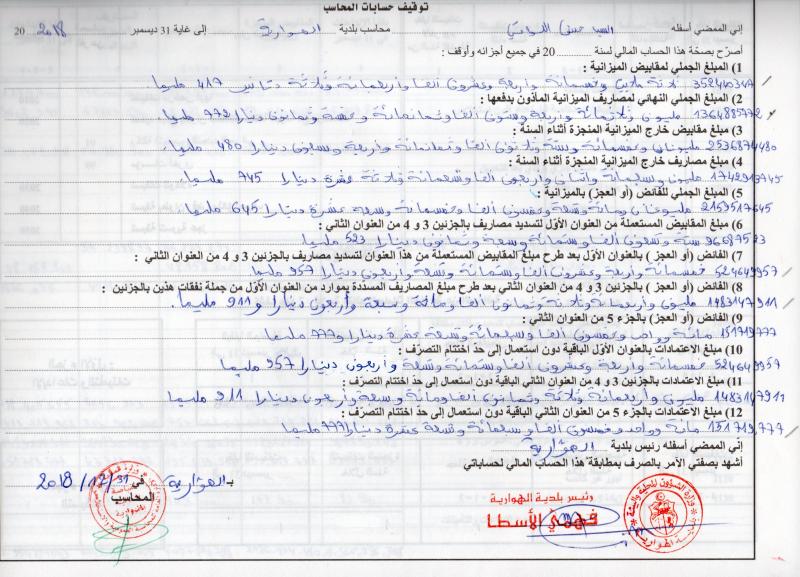 توقيف حسابات المحاسب
إني الممضي أسفله السيد حسن محاسب بلدية الهوارية إلى غاية 31 ديسمبر 2018 20
أصرّح بصحّة هذا الحساب المالي لسنة 20 في جميع أجزائه وأوقف :
1) المبلغ الجملي لمقابيض الميزانية :
ثلاثة ملايين وخمسمائة وأربعة وعشرون ألفا وأربعمائة وثلاثة دنانير 417 مليما
2) المبلغ الجملي النهائي لمصاريف الميزانية المأذون بدفعها :
1364885772 مليون وثلاثمائة وأربعة وستون ألفا وثمانمائة وخمسة وثمانون دينارا 772 مليما
3) مبلغ مقابيض خارج الميزانية المنجزة أثناء السنة :
2536874480 مليونان وخمسمائة وستة وثلاثون ألفا وثمانمائة وأربعة وسبعون دينارا 480 مليما
4) مبلغ مصاريف خارج الميزانية المنجزة أثناء السنة :
1742913745 مليون وسبعمائة واثنان وأربعون ألفا وتسعمائة وثلاثة عشرة دينارا 745 مليما
5) المبلغ الجملي للفائض (أو العجز) بالميزانية :
2159517645 مليونان ومائة وتسعة وخمسون ألفا وخمسمائة وسبعة عشرة دينارا 645 مليما
6) مبلغ المقابيض المستعملة من العنوان الأوّل لتسديد مصاريف بالجزئين 3 و 4 من العنوان الثاني :
96687523 ستة وتسعون ألفا وستمائة وسبعة وثمانون دينارا 523 مليما
7) الفائض (أو العجز) بالعنوان الأوّل بعد طرح مبلغ المقابيض المستعملة من هذا العنوان لتسديد مصاريف بالجزئين 3 و 4 من العنوان الثاني :
524649957 خمسمائة وأربعة وعشرون ألفا وستمائة وتسعة وأربعون دينارا 957 مليما
8) الفائض (أو العجز) بالجزئين 3 و 4 من العنوان الثاني بعد طرح مبلغ المصاريف المسدّدة بموارد من العنوان الأوّل من جملة نفقات هذين بالجزئين :
1483147911 مليون وأربعمائة وثلاثة وثمانون ألفا ومائة وسبعة وأربعون دينارا و 911 مليما
9) الفائض (أو العجز) بالجزء 5 من العنوان الثاني :
151719777 مائة وواحد وخمسون ألفا وسبعمائة وتسعة عشرة دينارا و 777 مليما
10) مبلغ الاعتمادات بالعنوان الأوّل الباقية دون استعمال إلى حدّ اختتام التصرّف :
524649957 خمسمائة وأربعة وعشرون ألفا وستمائة وتسعة وأربعون دينارا 957 مليما
11) مبلغ الاعتمادات بالجزئين 3 و 4 من العنوان الثاني الباقية دون استعمال إلى حدّ اختتام التصرّف :
1483147911 مليون وأربعمائة وثلاثة وثمانون ألفا ومائة وسبعة وأربعون دينارا 911 مليما
12) مبلغ الاعتمادات بالجزء 5 من العنوان الثاني الباقية دون استعمال إلى حدّ اختتام التصرّف :
151719777 مائة وواحد وخمسون ألفا وسبعمائة وتسعة عشرة دينارا 777 مليما
إني الممضي أسفله رئيس بلدية الهوارية
أشهد بصفتي الآمر بالصرف بمطابقة هذا الحساب المالي لحساباتي
بـ الهوارية في 31/12/2018
المحاسب
رئيس بلدية الهوارية
فهمي الأسطا